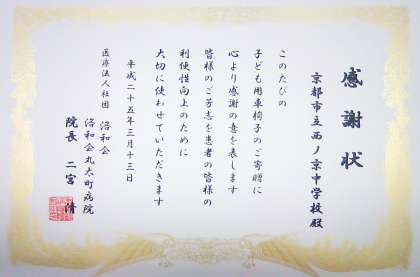 感謝状
京都市立西ノ京中学校殿
このたびの
子ども用車椅子のご寄贈に
心より感謝の意を表します
皆様のご芳志を患者の皆様の
利便性向上のために
大切に使わせていただきます
平成二十五年三月十三日
医療法人社団 洛和会
洛和会丸太町病院
院長 二宮 清